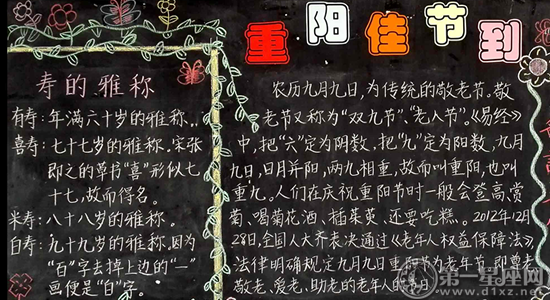 重阳佳节到
寿的雅称
有寿:年满六十岁的雅称..
喜寿:七十七岁的雅称,宋张
即之的草书“喜”形似七
十七,故而得名。
米寿:八十八岁的雅称。
白寿:九十九岁的雅称,因为
“百”字去掉上边的“一”
画便是“白”字。
农历九月九日,为传统的敬老节。敬
老节又称为“双九节”、“老人节”。《易经》
中,把“六”定为阴数,把“九”定为阳数,九月
九日,日月并阳,两九相重,故而叫重阳,也叫
重九。人们在庆祝重阳节时一般会登高赏
菊、喝菊花酒、插茱萸、还要吃糕。2012年12月
28日,全国人大齐表决通过《老年人权益保障法》
法律明确规定九月九日重阳节为老年节,即尊老
敬老、爱老、助老的老年人的节日
第一星座网
www.d1xz.net